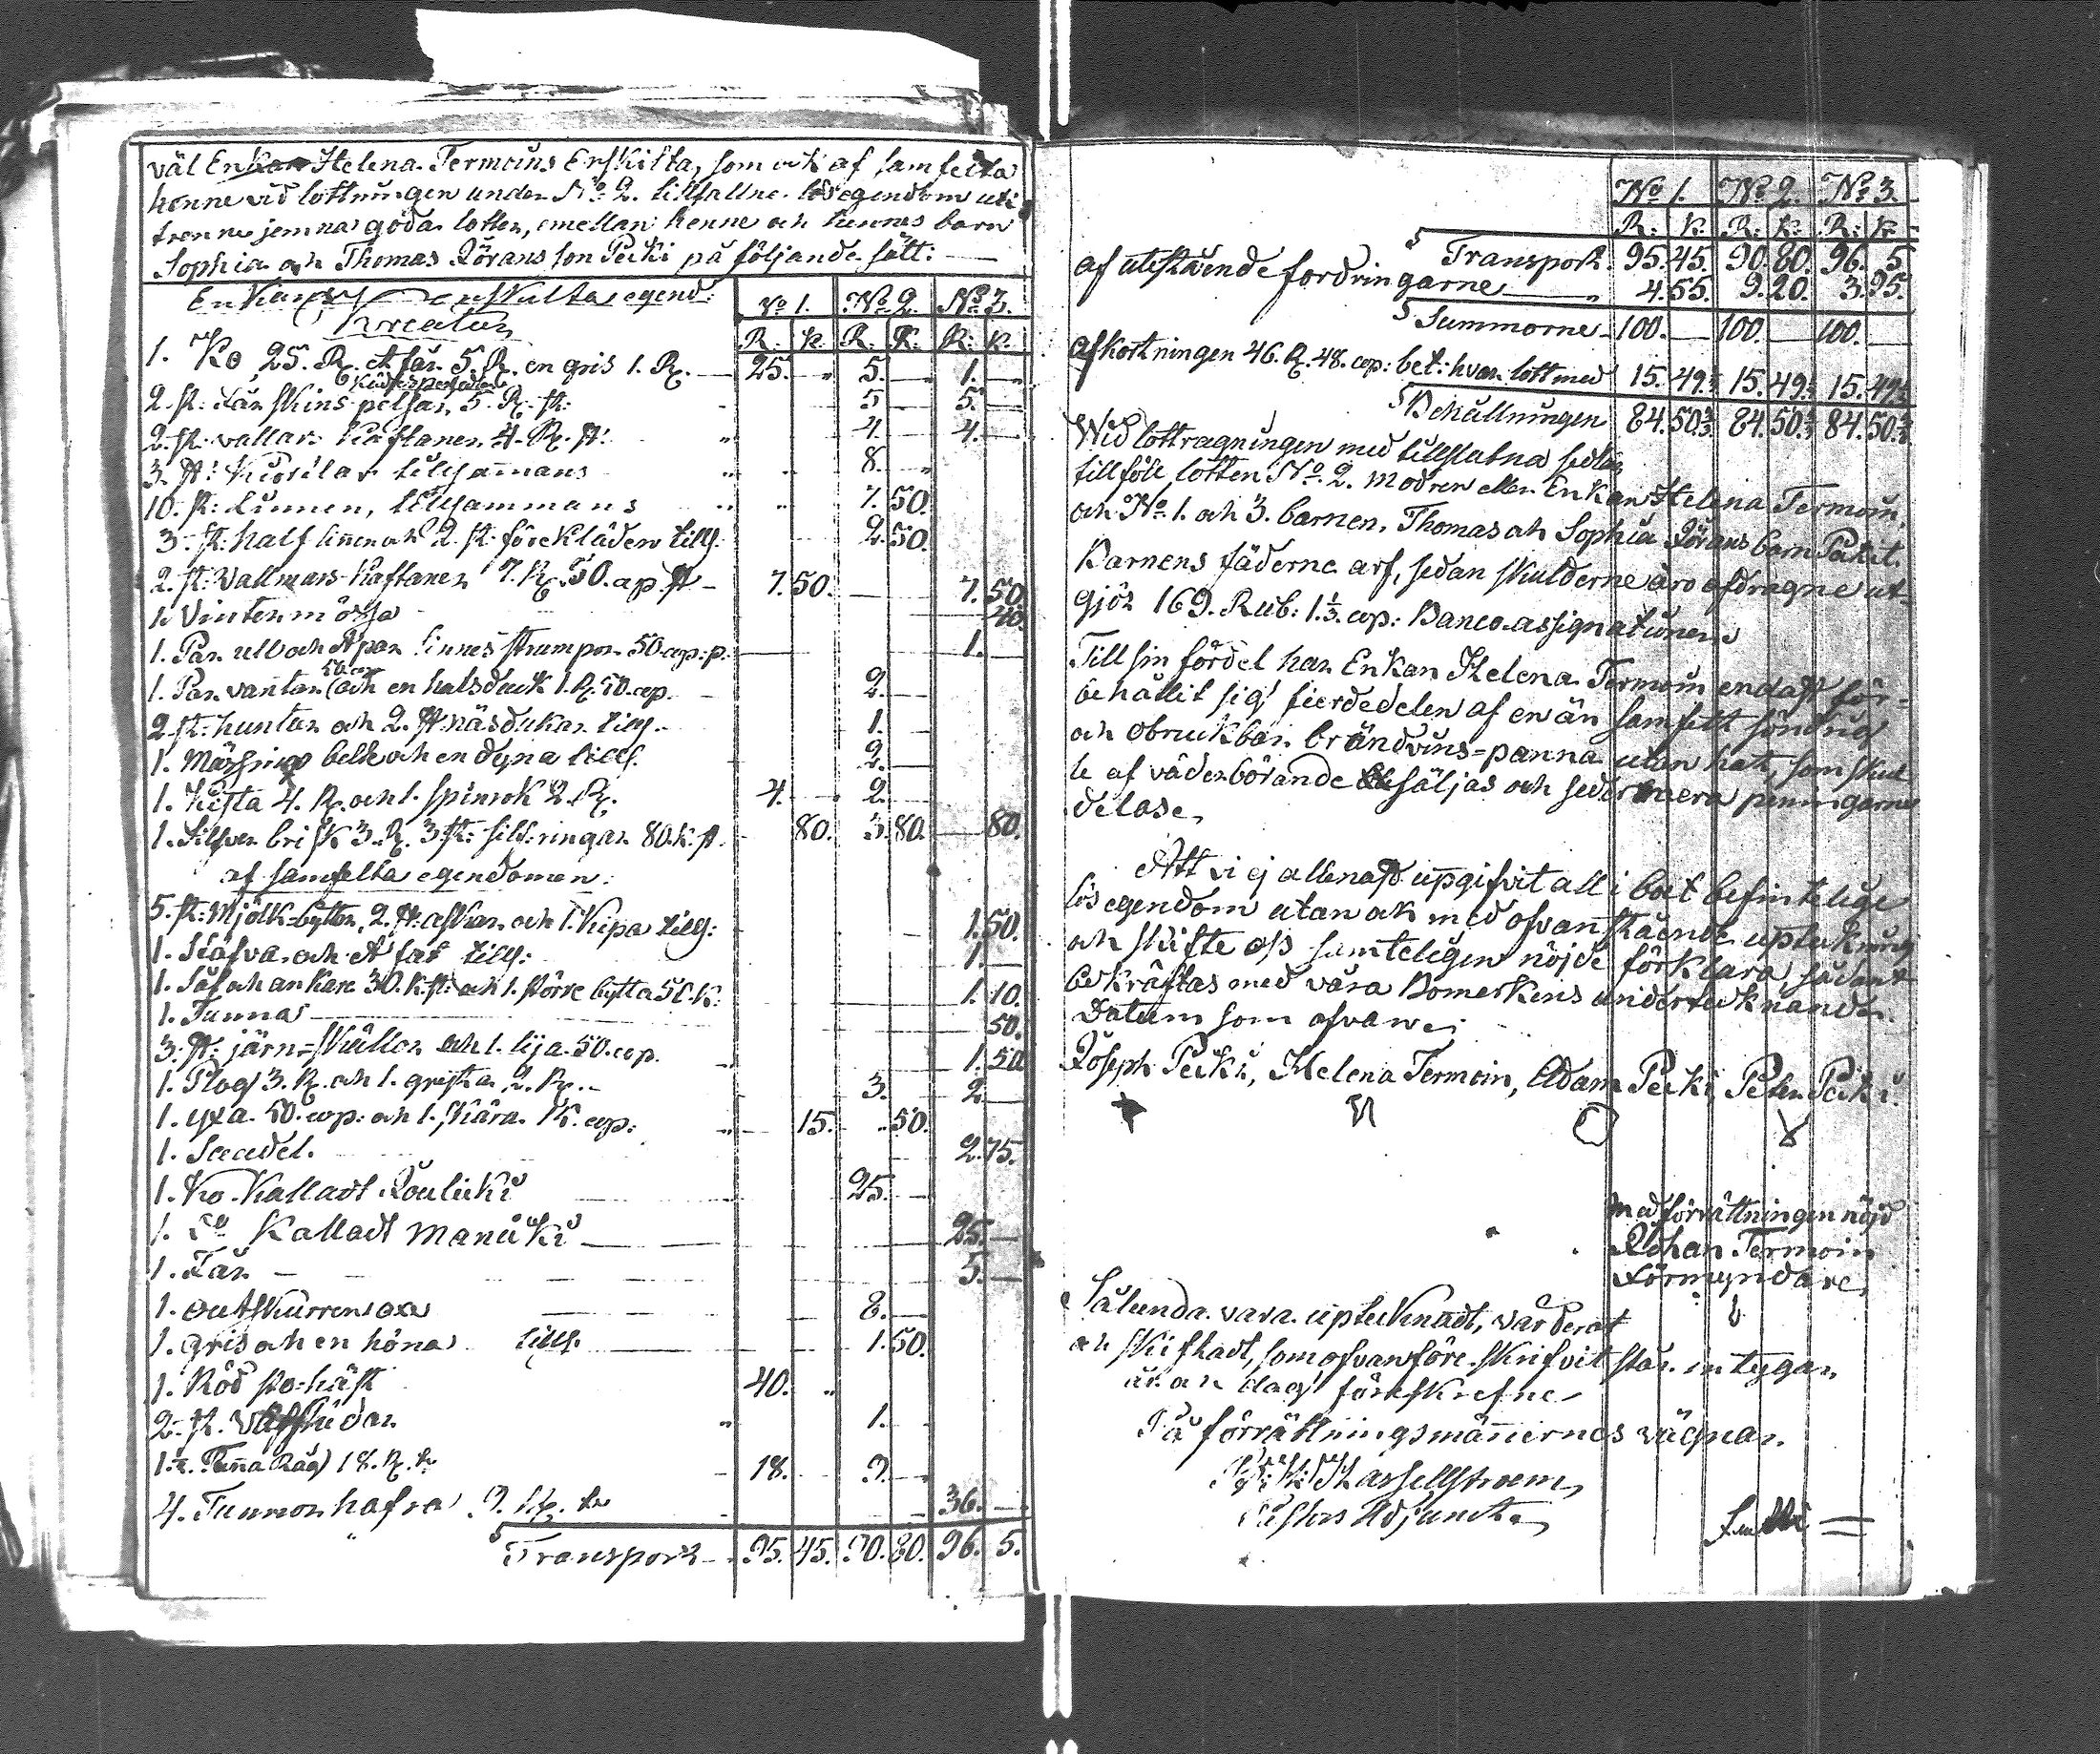 väl Enkan Helena Termoins Enskilta, som ock af samfelta
henne vid lottningen under No 2. tillfallne lösegendom uti
trenne jemna goda lotter, emellan henne och hennes barn
Sophia och Thomas Jörans son Peiki på följande sätt:
Enkans enskilta egend:
Kreatur
No 1. No 2. No 3.
R: K. R: K. R: K.
1. Ko 25. R. et får 5. R. en gris 1. R. 25. 5. 1.
2. st: Fårskins pelsar, 5. R. st: 5. 5.
2. st. vallar Kaftaner 4. R. st: 4. 4.
3. st: tillsammans 8.
10. st: Linnen, tillsammans 7. 50.
3. st: half linnen och 2. st: förekläden tills. 2. 50.
2. st: Vallmars Kaftaner 7. R. 50. cop st 7. 50. 7. 50
1. Vinter mössa 40.
1. Par ull och et par linnes strumpor 50. cop: p: 1.
1. Par vantar 50 cop och en halsduk 1. R. 50. cop. 2.
2. st: huntor och 2. st: näsdukar tills. 1.
1. Mässings belte och en dyna tills. 2.
1. Kista 4. R. och 1. spinrok 2. R. 4. 2.
1. Silfver brisk 3. R. 3 st: silf: ringar 80. k: st. 80. 3. 80. 80.
af samfelta egendomen:
5. st: Mjölk-byttor, 2. st: askar och 1. Kipa tills: 1. 50.
1. Stäfva och et fat tills: 1.
1. Så och ankare 30. k. st: och 1. större bytta 50. k: 1. 10.
1. Tunna 50.
3. st: järn-skållor och 1. lija 50. cop. 1. 50
1. Plog 3. R. och 1. gryta 2. R. 3. 2
1. yxa 50. cop: och 1. skära 15. cop: 15. 50.
1. Saadel. 2. 75.
1. Ko Kallad Joulicki 25.
1. Do Kallad Manicki 25.
1. Får 5.
1. outskurren oxe 8.
1. gris och en höna tills. 1. 50.
1. Röd sto-häst 40.
2. st. 1.
1.½. Tunna Råg 18. R. tr 18. 9.
4. Tunnor hafra 9. R. tr 36.
Transport 95. 45. 90. 80. 96. 5.
No 1. No 2. No 3.
R: K. R: K. R: K
Transport 95. 45. 90. 80. 96. 5
af utestående fordringarne 4. 55. 9. 20. 3. 95.
Summorne 100. 100. 100.
afkortningen 46. R. 48. cop: bet: hvar lott med 15. 49⅓ 15. 49⅓ 15. 49⅓
Behållningen 84. 50⅔ 84. 50⅔ 84. 50⅔
Wid lottdragningen med tillslutna sedlar
tillföll lotten No 2. modren eller Enkan Helena Termoin,
och No 1. och 3. barnen, Thomas och Sophia Jörans barn Peiki.
Barnens fäderne arf, sedan skulderne äro afdragne ut-
gjör 169. Rub: 1⅓. cop: Banco assignationer.
Till sin fördel har Enkan Helena Termoin endast för-
behållit sig fierdedelen af en än samfelt söndrig
och obruckbar brändvins-panna utan hatt, som skul
le af väderbörande säljas och sedermera penningarne
delas.
Att vi ej allenast uppgifvit all i boet befintelige
lös egendom utan ock med ofvanstående uptekning
och skifte oss samteligen nöjde förklara, sådant
bekräftas med våra Bomerkens undertecknande.
Datum som ofvan
Joseph Peiki, Helena Termoin, Adam Peiki Peter Peiki.
Med förrättningen nöjd
Johan Termoin
Förmyndare
Sålunda vara uptecknadt, värderat
och skiftadt, som ofvanföre skrifvit står intygar,
år och dag förskrefne
På förrättningsmännernes vägnar.
Hassellstroem,
Pastors Adjunct.